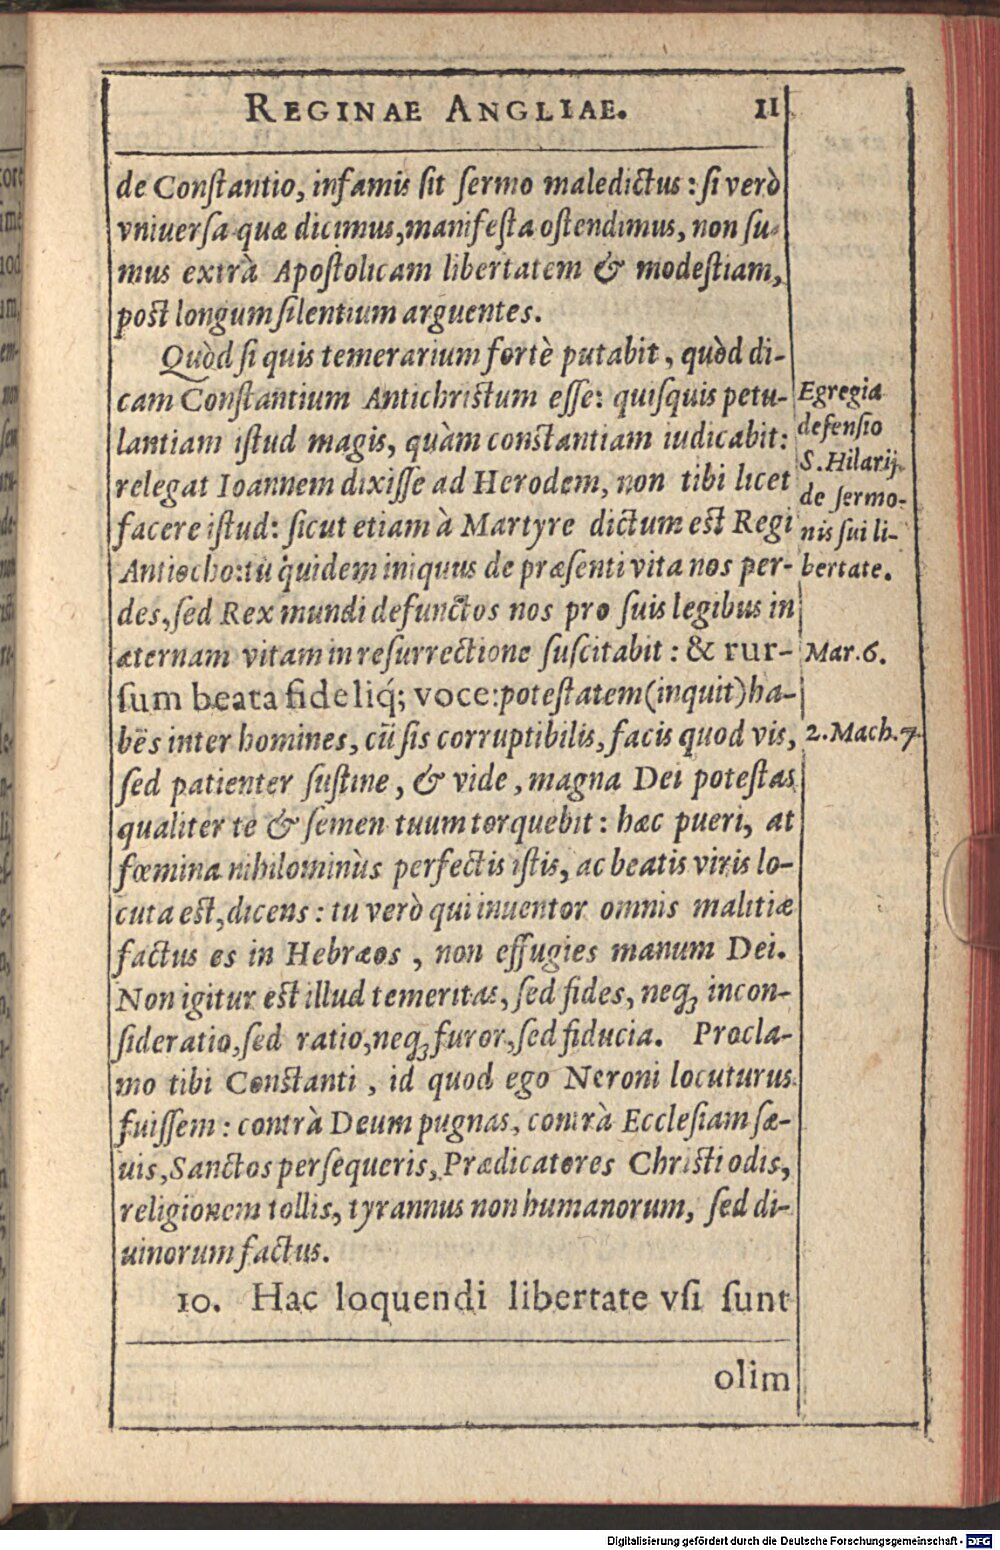 REGINAE ANGLIAE. 11
de Conſtantio, infamis ſit ſermo maledictus: ſi verò
vniuerſa quæ dicimus, manifeſta oſtendimus, non ſu-
mus extrà Apoſtolicam libertatem & modeſtiam,
poſt longum ſilentium arguentes.
Quòd ſi quis temerarium fortè putabit, quòd di-
cam Conſtantium Antichriſtum eſſe: quiſquis petu-
lantiam iſtud magis, quàm conſtantiam iudicabit:
relegat Ioannem dixiſſe ad Herodem, non tibi licet
facere iſtud: ſicut etiam à Martyre dictum eſt Regi
Antiocho: tù quidem iniquus de præſenti vita nos per-
des, ſed Rex mundi defunctos nos pro ſuis legibus in
æternam vitam in reſurrectione ſuſcitabit: & rur-
ſum beata fideliq́; voce: poteſtatem (inquit) ha-
bēs inter homines, cū ſis corruptibilis, facis quod vis,
ſed patienter ſuſtine, & vide, magna Dei poteſtas
qualiter te & ſemen tuum torquebit: hæc pueri, at
fœmina nihilominùs perfectis iſtis, ac beatis viris lo-
cuta eſt, dicens: tu verò qui inuentor omnis malitiæ
factus es in Hebræos, non effugies manum Dei.
Non igitur eſt illud temeritas, ſed fides, neq; incon-
ſideratio, ſed ratio, neq; furor, ſed fiducia. Procla-
mo tibi Conſtanti, id quod ego Neroni locuturus
fuiſſem: contrà Deum pugnas, contrà Eccleſiam ſæ-
uis, Sanctos perſequeris, Prædicatores Chriſti odis,
religionem tollis, tyrannus non humanorum, ſed di-
uinorum factus.
10. Hac loquendi libertate vſi ſunt
olim
Egregia
defenſio
S. Hilarij
de ſermo-
nis ſui li-
bertate.
Mar. 6.
2. Mach. 7.
Digitalisierung gefördert durch die Deutsche Forschungsgemeinschaft - DFG